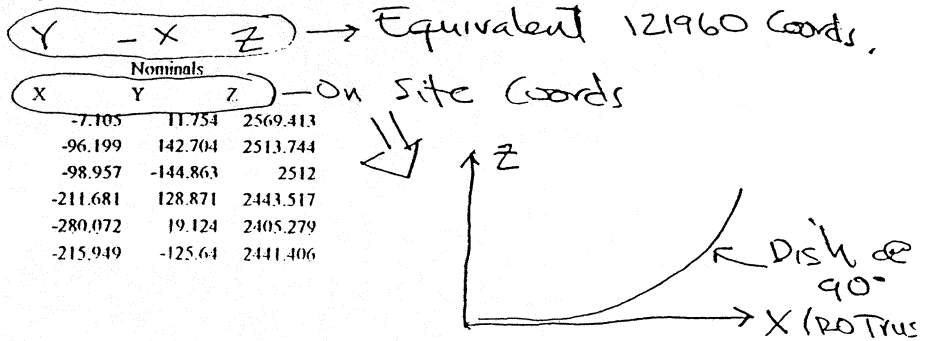 Y -X Z → Equivalent 121960 Coords.
Nominals
X Y Z — On Site Coords
-7.105 11.754 2569.413
-96.199 142.704 2513.744
-98.957 -144.863 2512
-211.681 128.871 2443.517
-280.072 19.124 2405.279
-215.949 -125.64 2441.406
Z
Dish @
90°
X (RO Trus